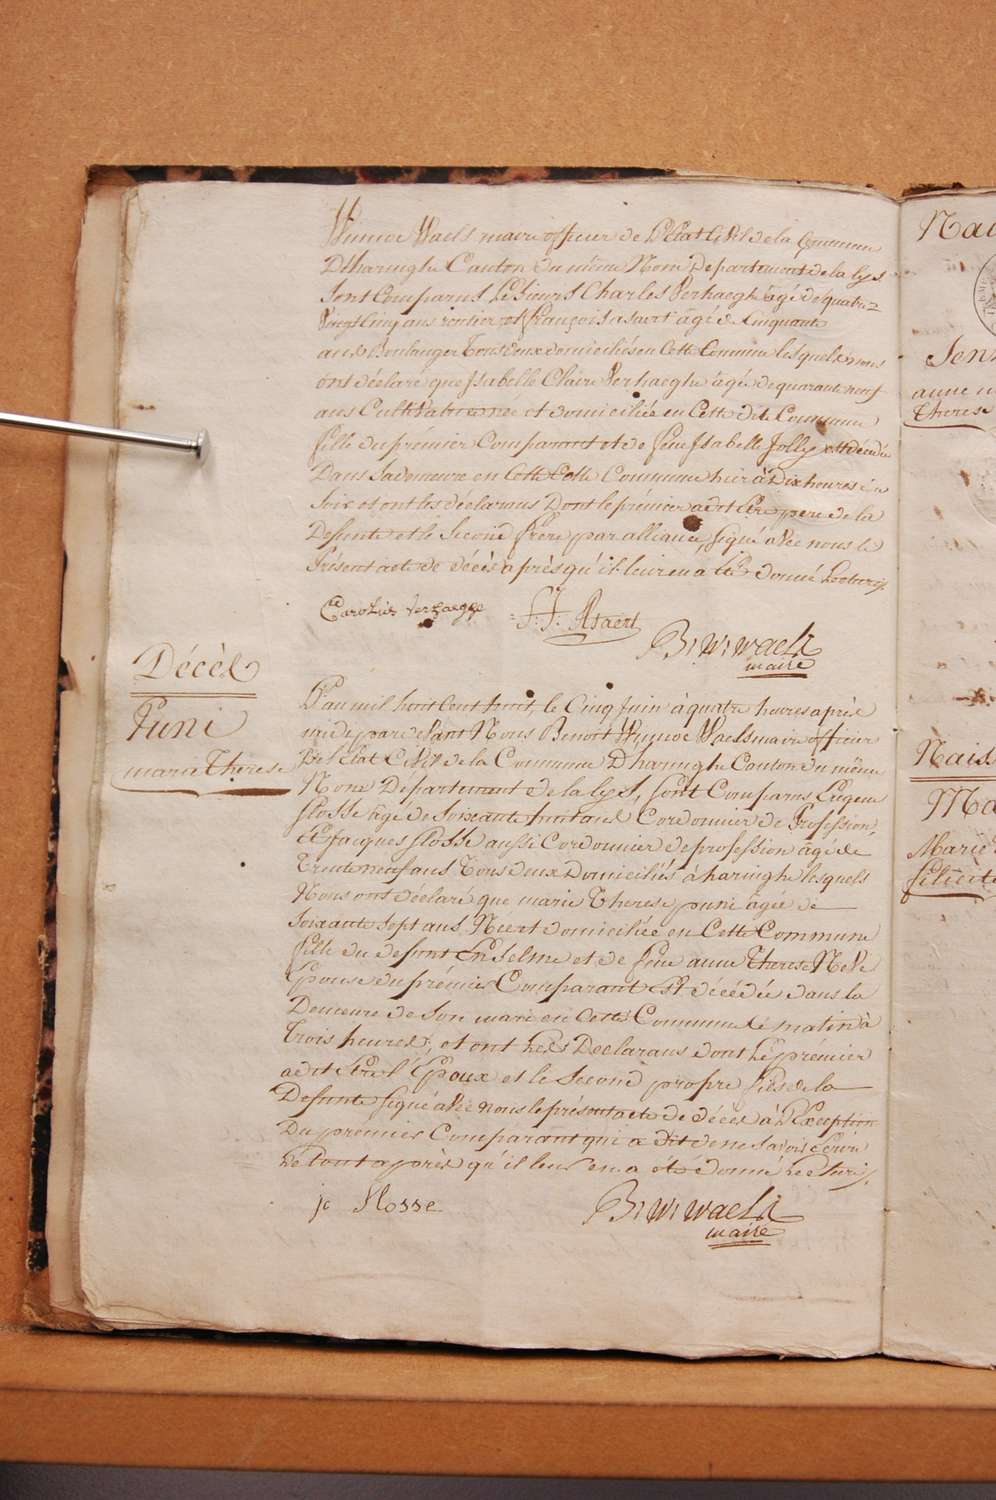 Winnoc Waels maire officier de L'Etat Civil de la Commune
D'haringhe Canton du même Nom Departement de la Lys
Sont Comparus Les Sieurs Charles Verhaeghe âgé de quatre
Vingt Cinq ans rentier et françois asaert âgé de Cinquante
ans Boulanger Tous deux domiciliés en Cette Commune lesquels nous
ont déclaré que Isabelle Claire Verhaeghe âgée de quarante neuf
ans Cultivatrice née et domiciliée en Cette dite Commune
fille du prémier Comparant et de feue Isabelle Jolly est décédée
Dans Sa demeure en Cette Commune hier à Dix heures du
Soir et ont les déclarans Dont le prémier a dit être pere de la
Defunte et le Second frere par alliance, signé avec nous le
Présent acte de décès après qu'il leur en a été donné Lecture
Carolus Verhaeghe
F. J. Asaert
B: W: Waels
maire
Décès
Puni
marie Therese
L'an mil huit Cent huit, le Cinq Juin à quatre heures après
midi pardevant Nous Benoit Winnoc Waels maire officier
De l'Etat Civil de la Commune D'haringhe Canton du même
Nom Département de la Lys, sont Comparus Eugene
Flosse âgé de Soixante huit ans Cordonnier de Profession,
Et Jacques Flosse aussi Cordonnier de profession âgé de
Trente neuf ans Tous deux Domiciliés à haringhe lesquels
Nous ont déclaré que marie Therese puni âgée de
Soixante Sept ans Née et domiciliée en Cette Commune
fille du defunt Enselme et de feue anne Therese Neve
Epouse du prémier Comparant Est décédée dans la
Demeure de Son mari en Cette Commune ce matin à
Trois heures; et ont Les Declarans dont Le prémier
a dit être l'Epoux et le Second propre fils de la
Defunte signé avec nous le présent acte de décès à L'Exception
Du premier Comparant qui a dit de ne savoir écrire
Le tout après qu'il leur en a été donné Lecture
jc Flosse
B: W: Waels
maire
Nai
Jen
anne
Therese
Naiss
Ma
Marie
félicité